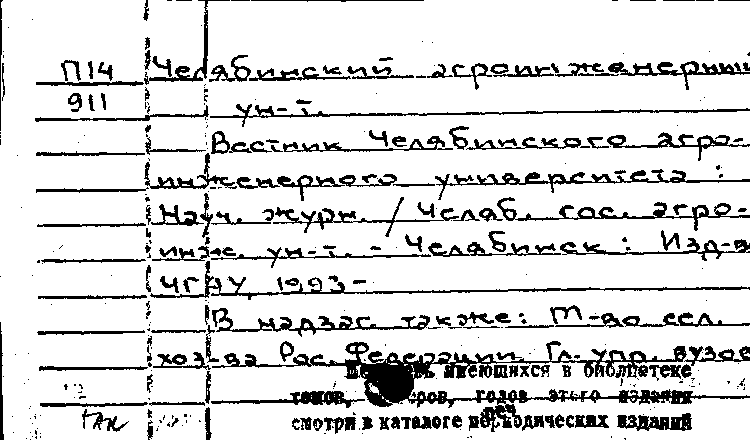 П14 Челябинский агроинженерный
911 ун-т.
Вестник Челябинского агро-
инженерного университета :
Науч. журн. / Челяб. гос. агро-
инж. ун-т. - Челябинск : Изд-во
ЧГАУ, 1993-
В надзаг. также: М-во сел.
хоз-ва Рос. Федерации. Гл. упр. вузов
имеющихся в библиотеке
томов, годов этого издания
смотри в каталоге периодических изданий